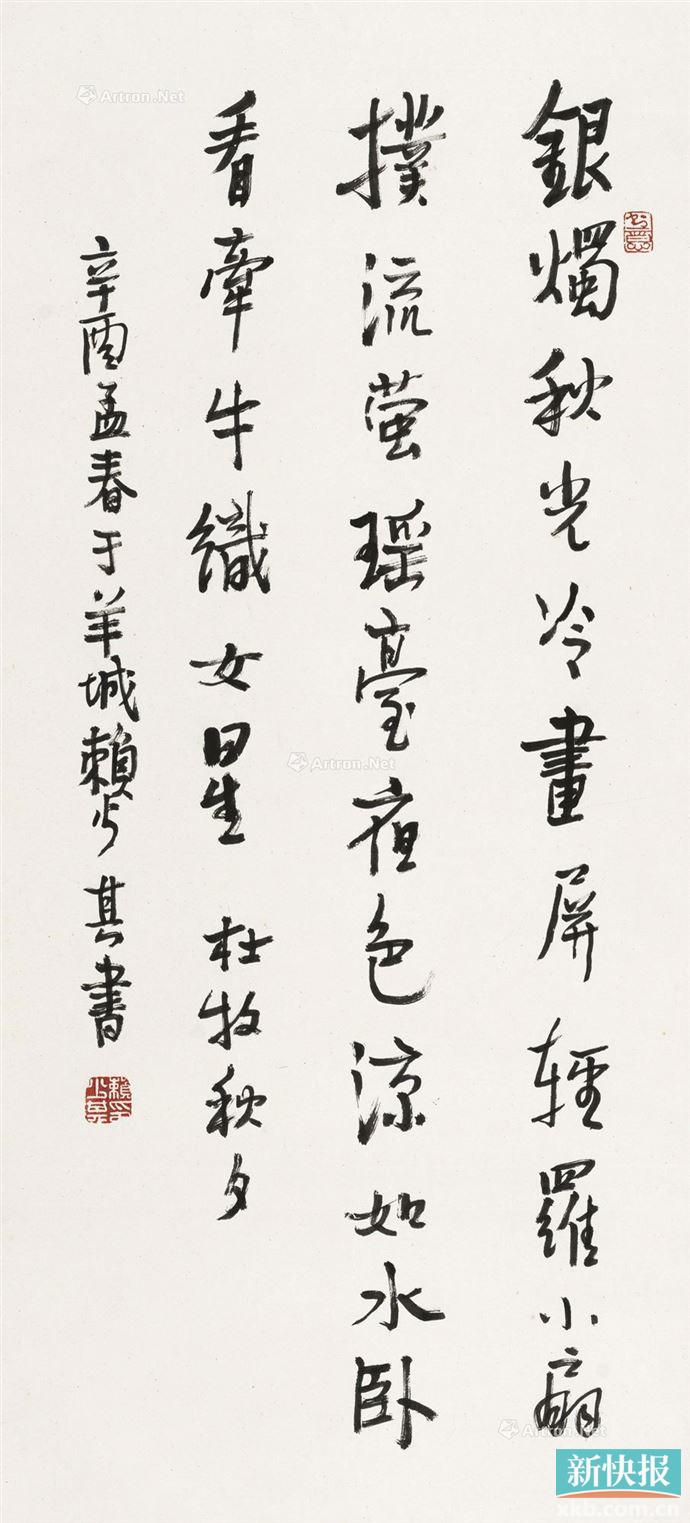 銀燭秋光冷畫屏輕羅小扇
撲流螢瑤臺夜色涼如水卧
看牽牛織女星 杜牧秋夕
辛酉孟春于羊城賴少其書
Artron.Net
Artron.Net
Artron.Net
新快报
xkb.com.cn